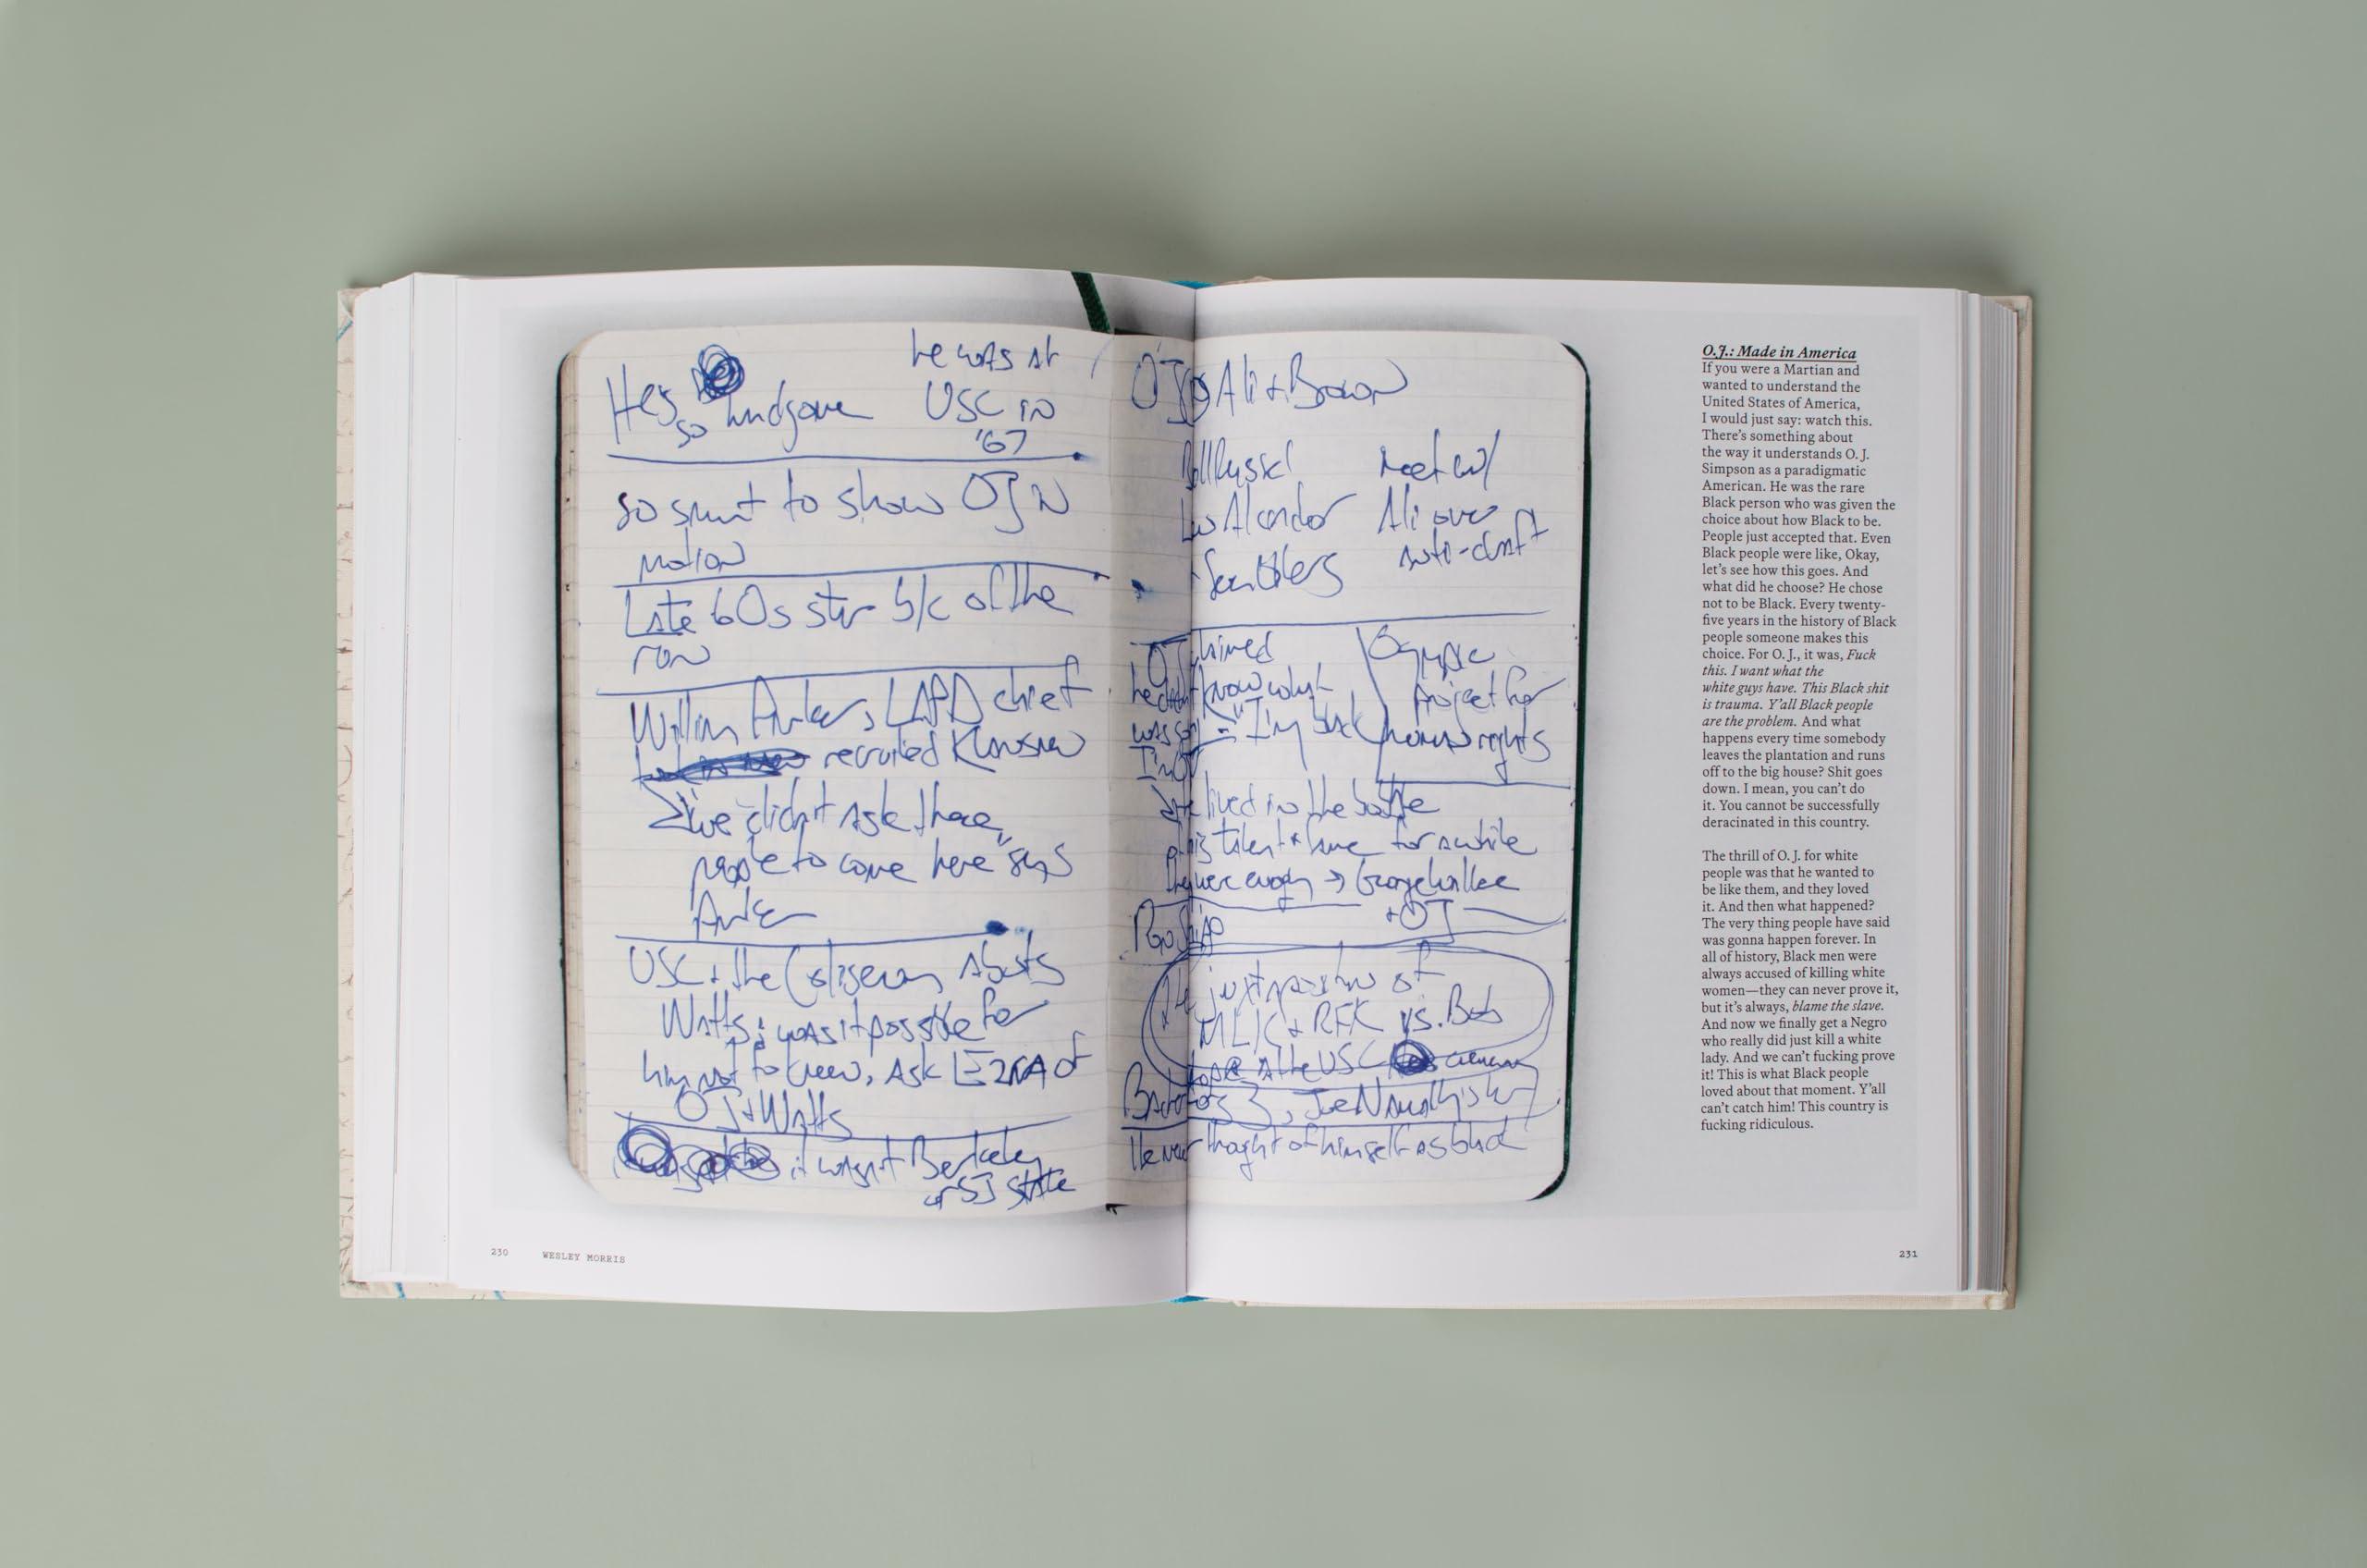 he was at
He's so handsome USC in
'67
so smart to show OJ in
motion
Late 60s star b/c of the
row
William Parker, LAPD chief
recruited Klansmen
"we didn't ask these
people to come here" says
Parker
USC + the Coliseum abuts
Watts: was it possible for
him not to know, Ask EZRA of
OJ + Watts
it wasn't Berkeley
or SJ State
OJ Ali + Brown
Bill Russell meet w/
Lew Alcindor Ali over
anti-draft
OJ Olympic
he didn't know what project for
was = "I'm human rights
I'm OJ
He lived in the bubble
his talent + fame for awhile
they were enough → George Wallace
+ OJ
The juxtaposition of
MLK + RFK vs. Bob
Hope at the USC
Joe Namath
He never thought of himself as black
230 WESLEY MORRIS
O.J.: Made in America
If you were a Martian and
wanted to understand the
United States of America,
I would just say: watch this.
There's something about
the way it understands O. J.
Simpson as a paradigmatic
American. He was the rare
Black person who was given the
choice about how Black to be.
People just accepted that. Even
Black people were like, Okay,
let's see how this goes. And
what did he choose? He chose
not to be Black. Every twenty-
five years in the history of Black
people someone makes this
choice. For O. J., it was, Fuck
this. I want what the
white guys have. This Black shit
is trauma. Y'all Black people
are the problem. And what
happens every time somebody
leaves the plantation and runs
off to the big house? Shit goes
down. I mean, you can't do
it. You cannot be successfully
deracinated in this country.
The thrill of O. J. for white
people was that he wanted to
be like them, and they loved
it. And then what happened?
The very thing people have said
was gonna happen forever. In
all of history, Black men were
always accused of killing white
women—they can never prove it,
but it's always, blame the slave.
And now we finally get a Negro
who really did just kill a white
lady. And we can't fucking prove
it! This is what Black people
loved about that moment. Y'all
can't catch him! This country is
fucking ridiculous.
231